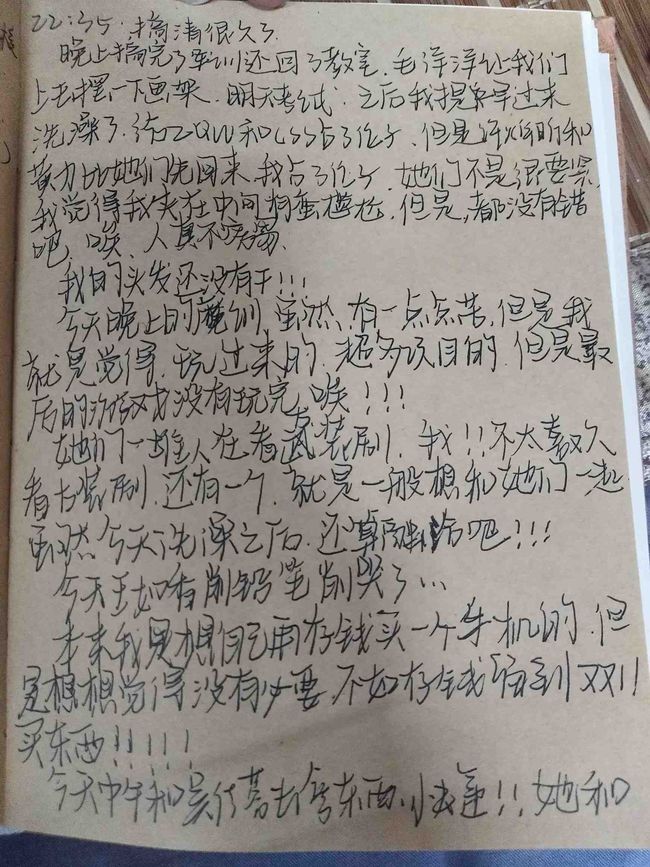 22:35 搞清很久了
晚上搞完了军训还回了教室,毛洋洋让我们
上去摆一下画架,明天考试,之后我提早过来
洗澡了,给ZQW和CSS占了位子,但是
她们先回来,我占了位子,她们不是很要紧
我觉得我夹在中间挺尴尬,但是,都没有错
吧,唉,人真不
我的头发还没有干!!!
今天晚上的训,虽然有一点点苦,但是我
就是觉得,玩过来的,超多项目的,但是最
后的游戏没有玩完,唉!!!
她们一堆人在看古装剧,我!!不太喜欢
看古装剧,还有一个,就是一般想和她们一起
虽然今天洗澡之后,还算 吧!!!
今天王如香削铅笔削哭了...
本来我是想自己用存钱买一个手机的,但
是想想觉得没有必要,不如存钱留到双11
买东西!!!!!
今天中午和吴 去拿东西,!!她和